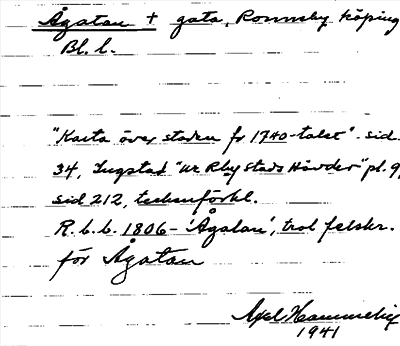 Ågatan + gata, Ronneby köping
Bl. l.
"Karta över staden fr 1740-talet" sid.
34, Ingstad "ur Rby Stads Hävder" pl. 9,
sid 212, teckenförkl.
R. b. b. 1806 - 'Ågalan', trol felskr.
för Ågatan
Axel
1941